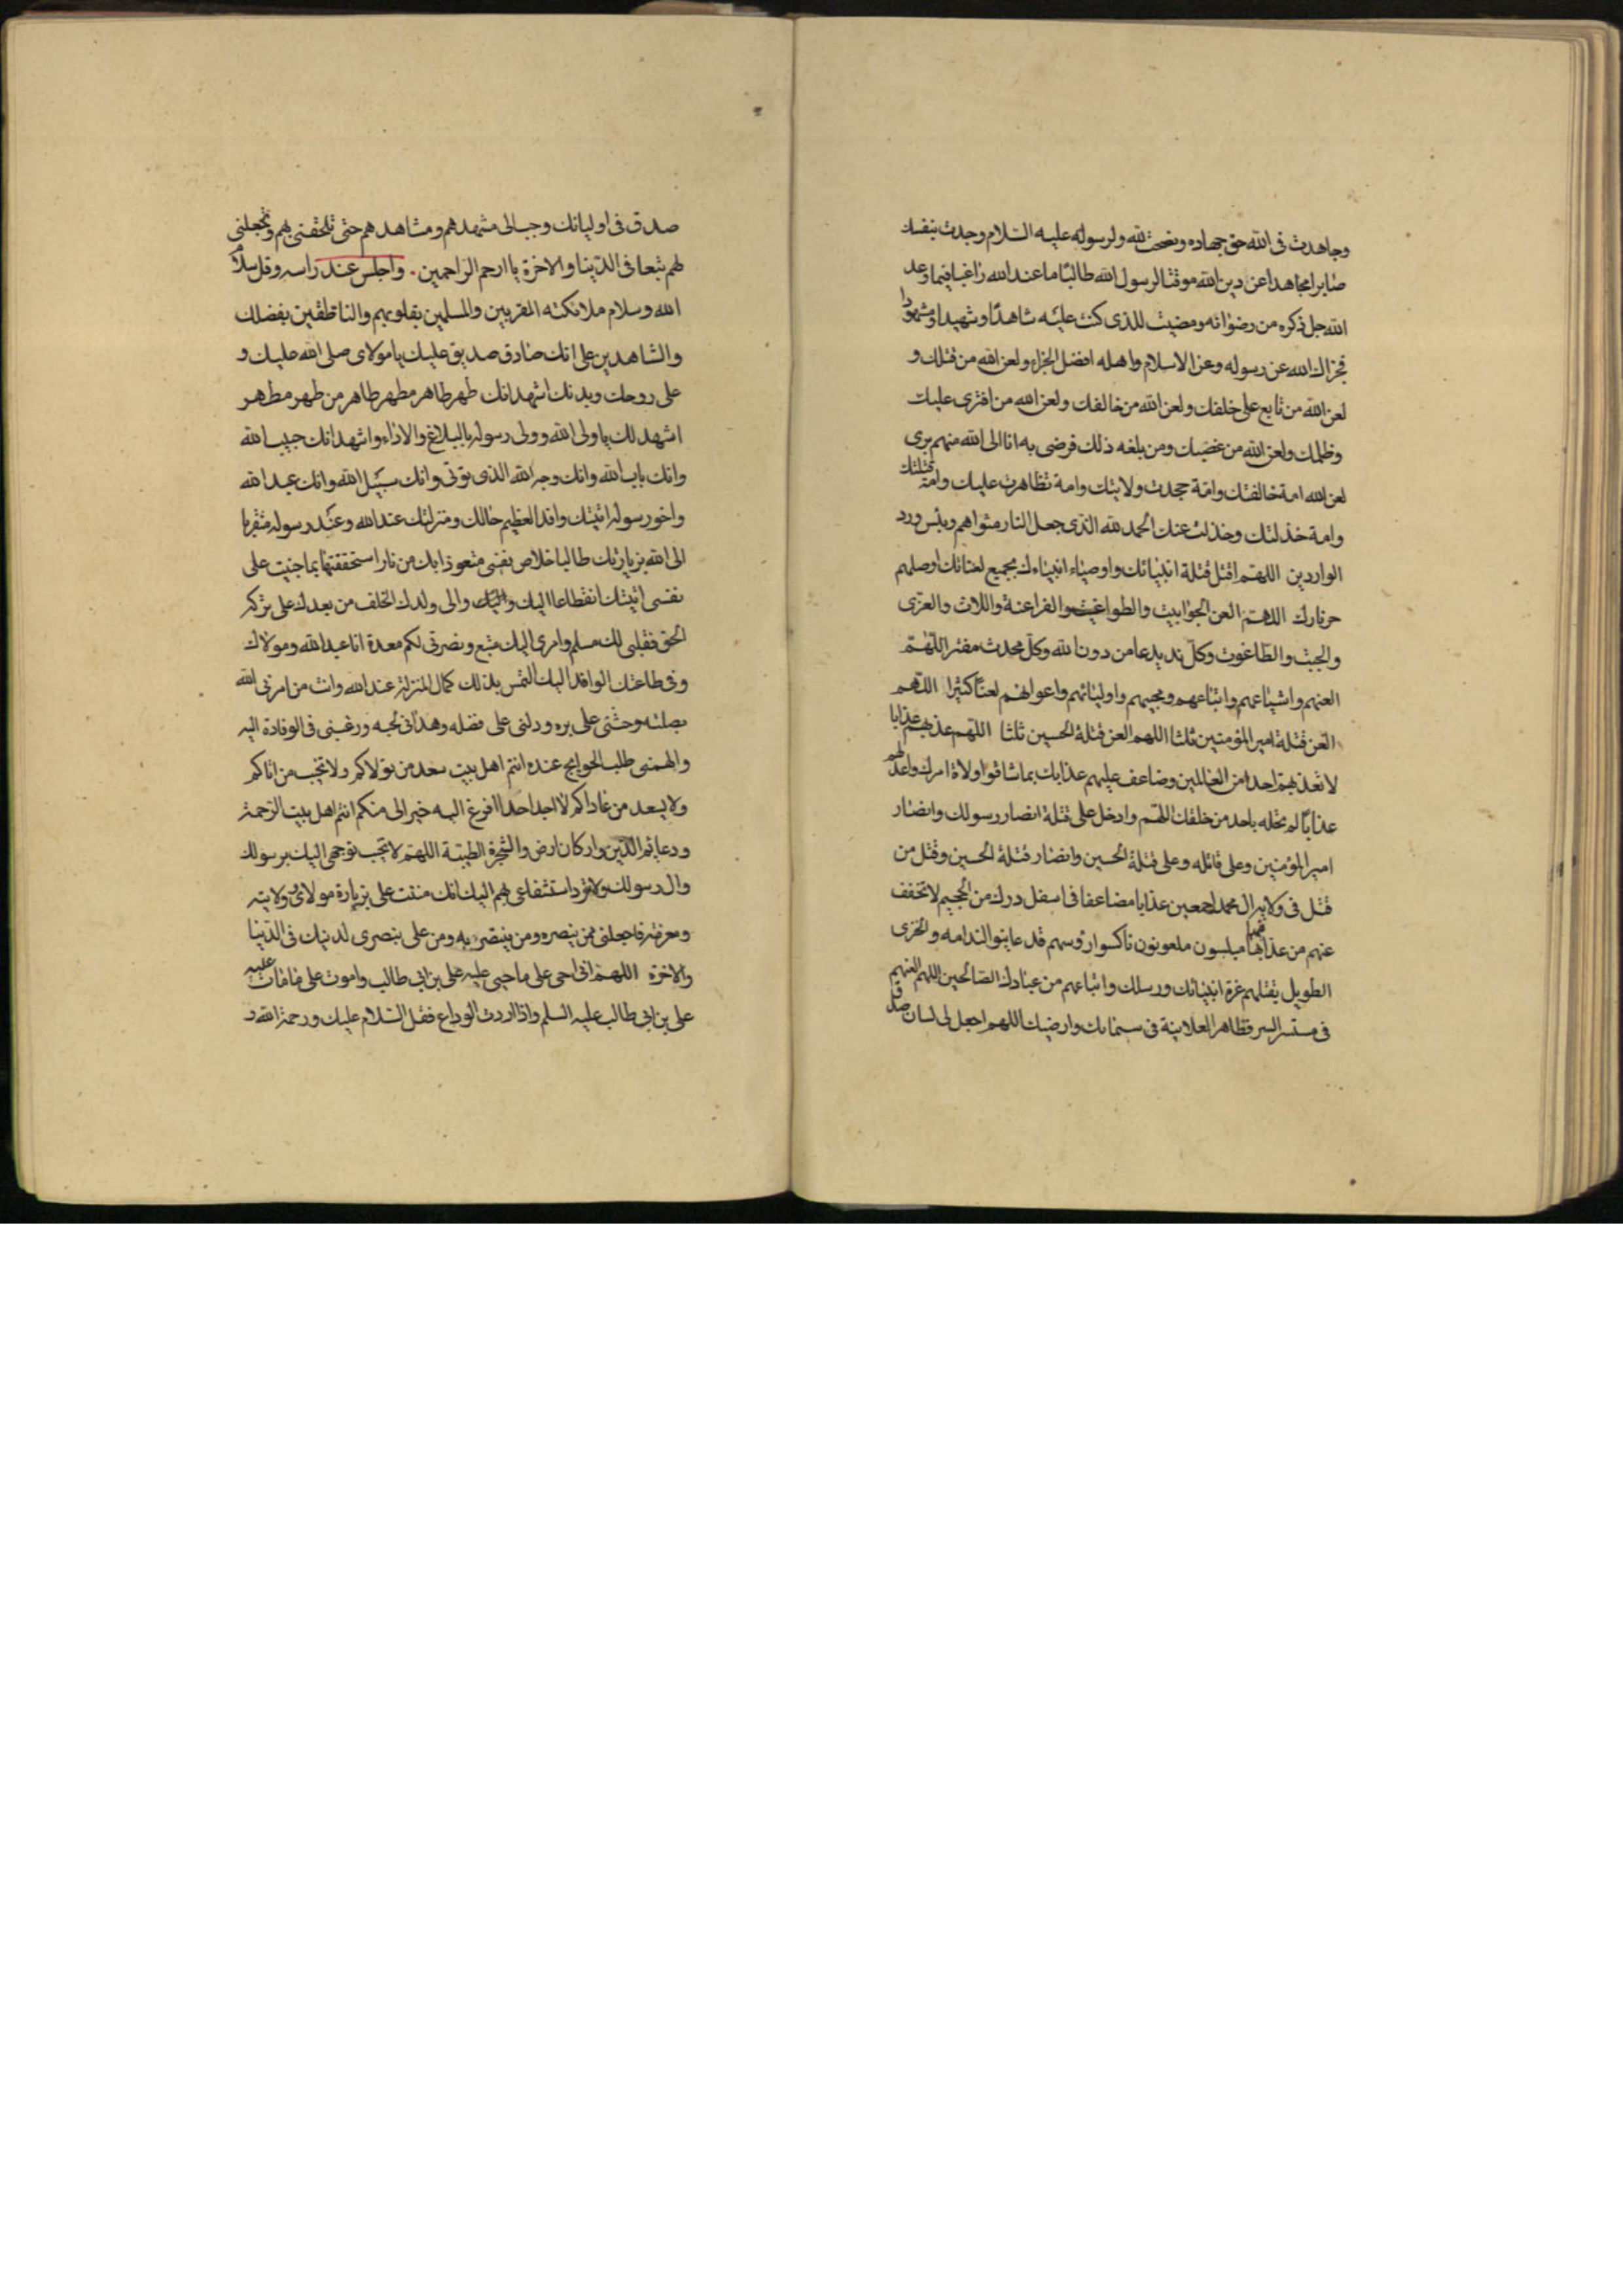 وجاهدت فى الله حق جهاده ونصحت لله ولرسوله عليه السلام وجدت بنفسك
صابرا مجاهدا عن دين الله موقنا لرسول الله طالبا ما عند الله راغبا فيما وعد
الله جل ذكره من رضوانه ومضيت للذى كنت عليه شاهدا وشهيدا ومشهودا
فجزاك الله عن رسوله وعن الاسلام واهله افضل الجزاء ولعن الله من قتلك و
لعن الله من تابع على خلفك ولعن الله من خالفك ولعن الله من افترى عليك
وظلمك ولعن الله من غصبك ومن بلغه ذلك فرضى به انا الى الله منهم برى
لعن الله امة خالفتك وامة جحدت ولايتك وامة تظاهرت عليك وامة قتلتك
وامة خذلتك وخذلت عنك الحمد لله الذى جعل النار مثواهم وبئس ورد
الواردين اللهم اقتل قتلة انبيائك واوصياء انبياءك بجميع لعناتك اوصلهم
حر نارك اللهم العن الجوابيت والطواغيت والفراعنة واللات والعزى
والجبت والطاغوت وكل ند يدعا من دون الله وكل محدث مفتر اللهم
العنهم واشياعهم واتباعهم ومحبيهم واوليائهم واعوانهم لعنا كثيرا اللهم
العن قتلة امير المؤمنين ثلثا اللهم العن قتلة الحسين ثلثا اللهم عذبهم عذابا
لا تعذبهم احدا من العالمين وضاعف عليهم عذابك بما شاقوا ولاة امرك واعد لهم
عذابا لم تحله باحد من خلقك اللهم وادخل على قتلة انصار رسولك وانصار
امير المؤمنين وعلى قاتله وعلى قتلة الحسين وانصار قتلة الحسين وقتل من
قتل فى ولاية ال محمد اجمعين عذابا مضاعفا فى اسفل درك من الجحيم لا تخفف
عنهم من عذابها فيها مبلسون ملعونون ناكسوا رؤسهم قد عاينوا الندامه والخزى
الطويل بقتلهم عترة انبيائك ورسلك واتباعهم من عبادك الصالحين اللهم العنهم
فى مستسر السر وظاهر العلانية فى سمائك وارضيك اللهم اجعل لى لسان صدق
صدق فى اوليائك وحبب الى مشهدهم ومشاهدهم حتى تلحقنى بهم وتجعلنى
لهم تبعا فى الدنيا والاخرة يا ارحم الراحمين . واجلس عند راسه وقل سلام
الله وسلام ملائكته المقربين والمسلمين بقلوبهم والناطقين بفضلك
والشاهدين على انك صادق صديق عليك يا مولاى صلى الله عليك و
على روحك وبدنك اشهد انك طهر طاهر مطهر طاهر من طهر مطهر
اشهد لك يا ولى الله وولى رسوله بالبلاغ والاداء واشهد انك حبيب الله
وانك باب الله وانك وجه الله الذى يوتى وانك سبيل الله وانك عبد الله
واخو رسوله اتيتك وافد العظيم حالك ومنزلتك عند الله وعند رسوله متقربا
الى الله بزيارتك طالبا خلاص نفسى متعوذا بك من نار استحققتها بما جنيت على
نفسى اتيتك انقطاعا اليك واليك والى ولدك الخلف من بعدك على تزكية
الحق فقلبى لك مسلم وامرى اليك متبع ونصرتى لكم معدة انا عبد الله ومولاك
وفى طاعتك الوافد اليك التمس بذلك كمال المنزلة عند الله وانت من امرنى الله
بصلته وحثنى على بره ودلنى على فضله وهدانى لحبه ورغبنى فى الوفادة اليه
والهمنى طلب الحوايج عنده انتم اهل بيت سعد من تولاكم ولا تخيب من اتاكم
ولا يسعد من عاداكم لا اجد احدا افزع اليه خير الى منكم انتم اهل بيت الرحمة
ودعائم الدين واركان ارض والشجرة الطيبة اللهم لا تخيب توجهى اليك برسولك
وال رسولك ولا ترد استشفاعى بهم اليك انك مننت على بزيارة مولاى وولايته
ومعرفته فاجعلنى ممن ينصره ومن ينتصر به ومن على بنصرى لدينك فى الدنيا
والاخرة اللهم انى احى على ما حيى عليه على بن ابى طالب واموت على ما مات عليه
على بن ابى طالب عليه السلم واذا اردت الوداع فقل السلام عليك ورحمة الله و